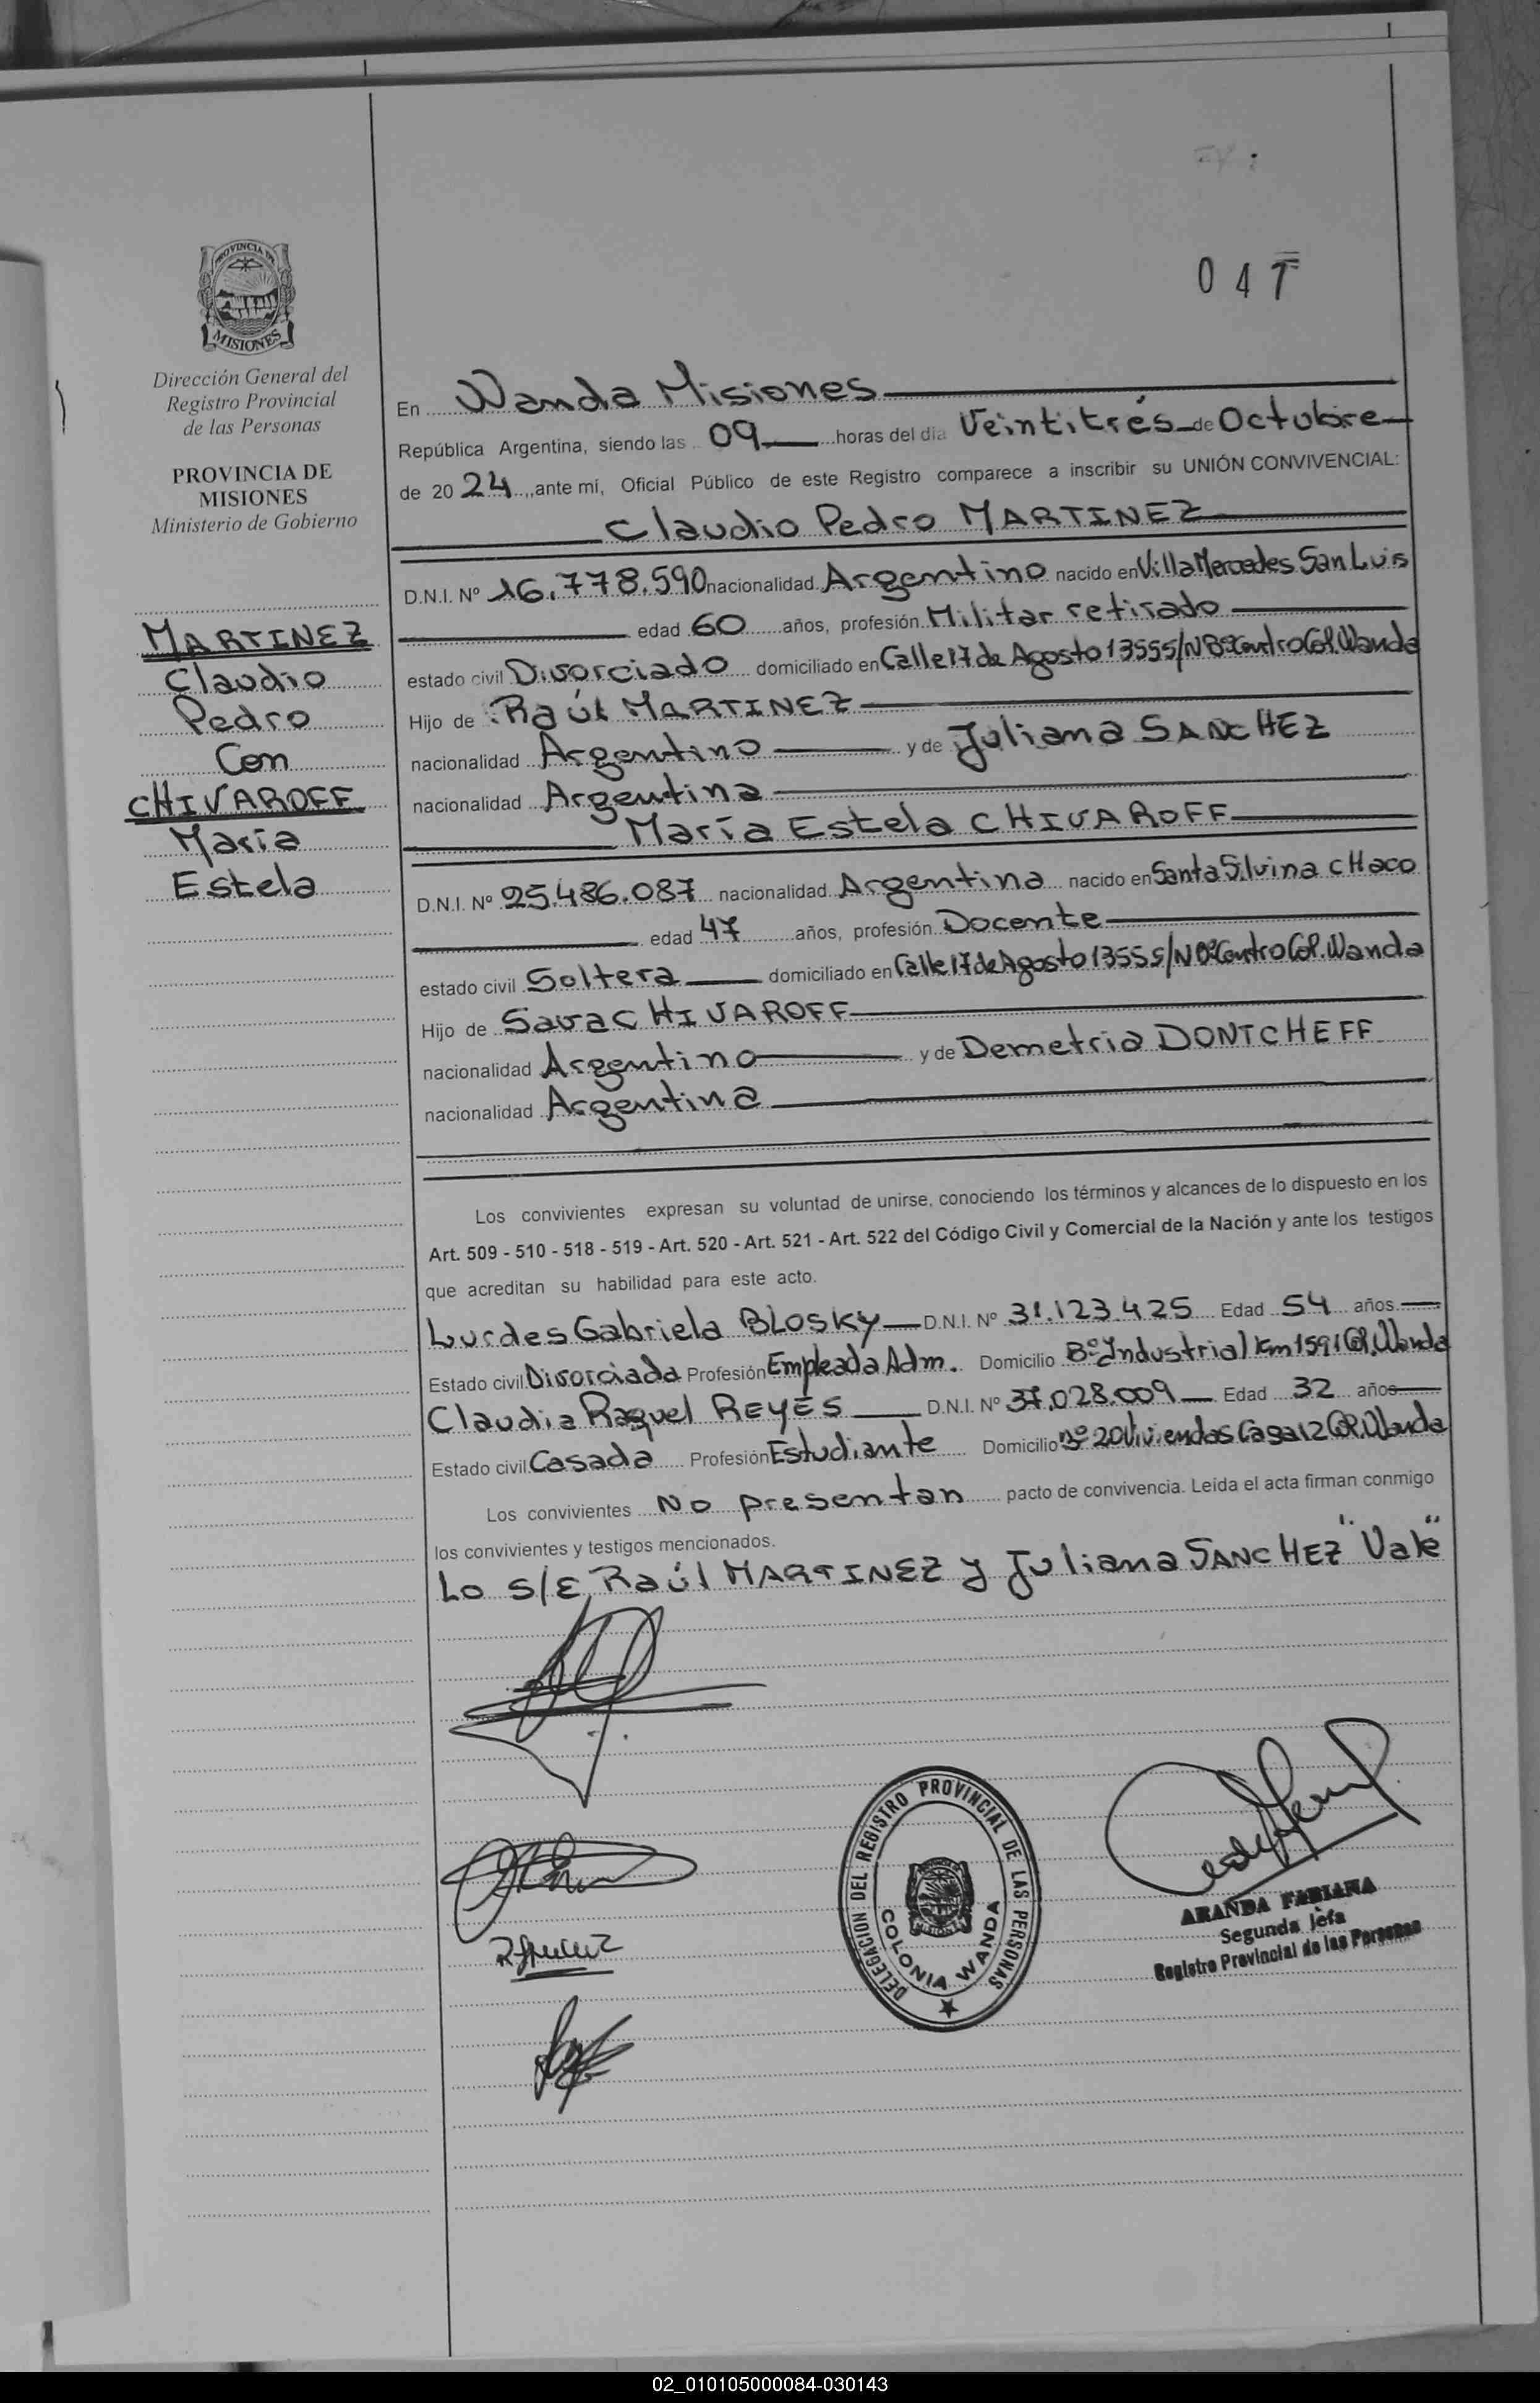 047
PROVINCIA DE
MISIONES
Dirección General del
Registro Provincial
de las Personas
PROVINCIA DE
MISIONES
Ministerio de Gobierno
MARTINEZ
Claudio
Pedro
Con
CHIVAROFF
María
Estela
En Wanda Misiones
República Argentina, siendo las 09 horas del día Veintitrés de Octubre
de 20 24, ante mí, Oficial Público de este Registro comparece a inscribir su UNIÓN CONVIVENCIAL:
Claudio Pedro MARTINEZ
D.N.I. Nº 16.778.590 nacionalidad Argentino nacido en Villa Mercedes San Luis
edad 60 años, profesión Militar retirado
estado civil Divorciado domiciliado en Calle 17 de Agosto 1355 S/N Bº Centro Col. Wanda
Hijo de Raúl MARTINEZ
nacionalidad Argentino y de Juliana SANCHEZ
nacionalidad Argentina
María Estela CHIVAROFF
D.N.I. Nº 25.486.087 nacionalidad Argentina nacido en Santa Silvina CHaco
edad 47 años, profesión Docente
estado civil Soltera domiciliado en Calle 17 de Agosto 1355 S/N Bº Centro Col. Wanda
Hijo de Sava CHIVAROFF
nacionalidad Argentino y de Demetria DONTCHEFF
nacionalidad Argentina
Los convivientes expresan su voluntad de unirse, conociendo los términos y alcances de lo dispuesto en los
Art. 509 - 510 - 518 - 519 - Art. 520 - Art. 521 - Art. 522 del Código Civil y Comercial de la Nación y ante los testigos
que acreditan su habilidad para este acto.
Lurdes Gabriela BLOSKY D.N.I. Nº 31.123.425 Edad 54 años.
Estado civil Divorciada Profesión Empleada Adm. Domicilio Bº Industrial Km 1591 Col. Wanda
Claudia Raquel REYES D.N.I. Nº 37.028.009 Edad 32 años
Estado civil Casada Profesión Estudiante Domicilio Bº 20 Viviendas Casa 12 Col. Wanda
Los convivientes No presentan pacto de convivencia. Leída el acta firman conmigo
los convivientes y testigos mencionados.
Lo S/E Raúl MARTINEZ y Juliana SANCHEZ "Vale"
DELEGACION DEL REGISTRO PROVINCIAL DE LAS PERSONAS
COLONIA WANDA
ARANDA FABIANA
Segunda Jefa
Registro Provincial de las Personas
02_010105000084-030143